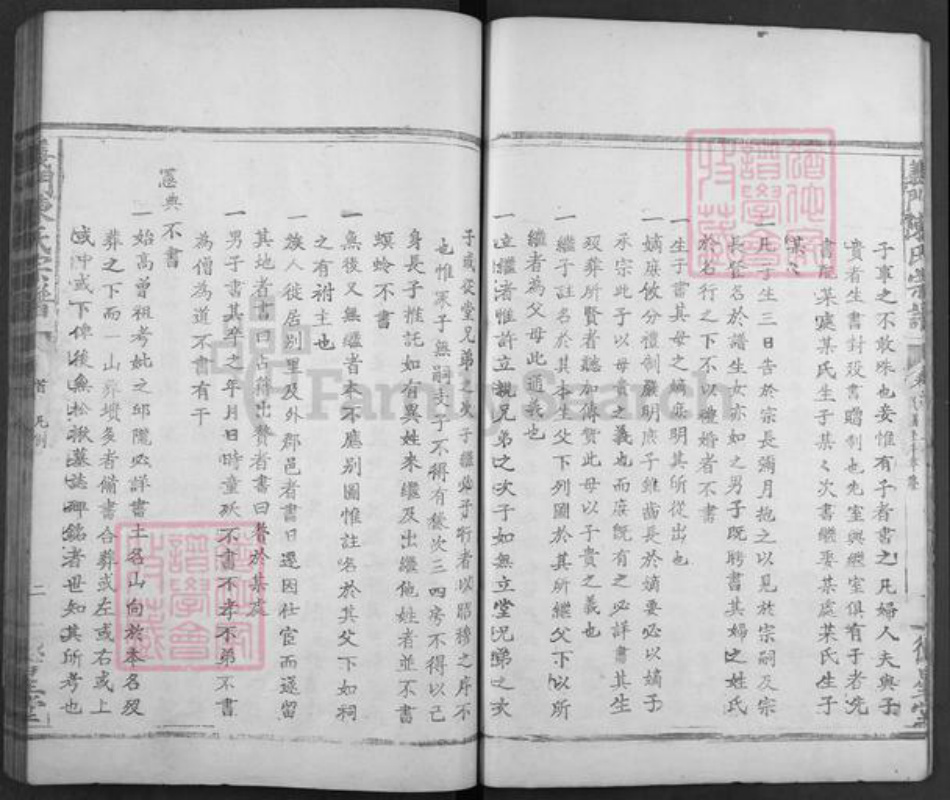 義門陳氏宗譜
子事之不敢昧也妾惟有子者書之凡婦人夫與子
貴者生書封歿書贈制也先室與繼室俱有子者先
書配某處某氏生子某々次書繼娶某處某氏生子
某々
一凡子生三日告於宗長彌月抱之以見於宗嗣及宗
長登名於譜生女亦如之男子既聘書其婦之姓氏
於名行之下不以禮婚者不書
一生子書其母之嫡庶明其所從出也
一嫡庶攸分禮制嚴明庶子雖齒長於嫡要必以嫡子
承宗此子以母貴之義也而庶既有之必詳書其生
歿葬所賢者聽加傳贊此母以子貴之義也
一繼子註名於其本生父下列圖於其所繼父下以所
繼者為父母此通義也
一立繼者惟許立親兄弟之次子如無立堂兄弟之次
子或從堂兄弟之次子繼必予行者以昭穆之序不
也惟冢子無嗣支子不得有後次三四房不得以己
身長子推託如有異姓來繼及出繼他姓者並不書
螟蛉不書
一無後又無繼者本不應別圖惟註名於其父下如祠
之有祔主也
一族人徙居別里及外郡邑者書曰遷因仕宦而遂留
其地者書曰占籍出贅者書曰贅於某處
一男子書其卒之年月日時童殀不書不孝不弟不書
為僧為道不書有干
憲典不書
一始高曾祖考妣之邱隴必詳書土名山向於本名歿
葬之下而一山葬墳多者備書合葬或左或右或上
或中或下俾後無松楸墓誌碑銘者世知其所考也
義門陳氏宗譜
凡例
二
星堂